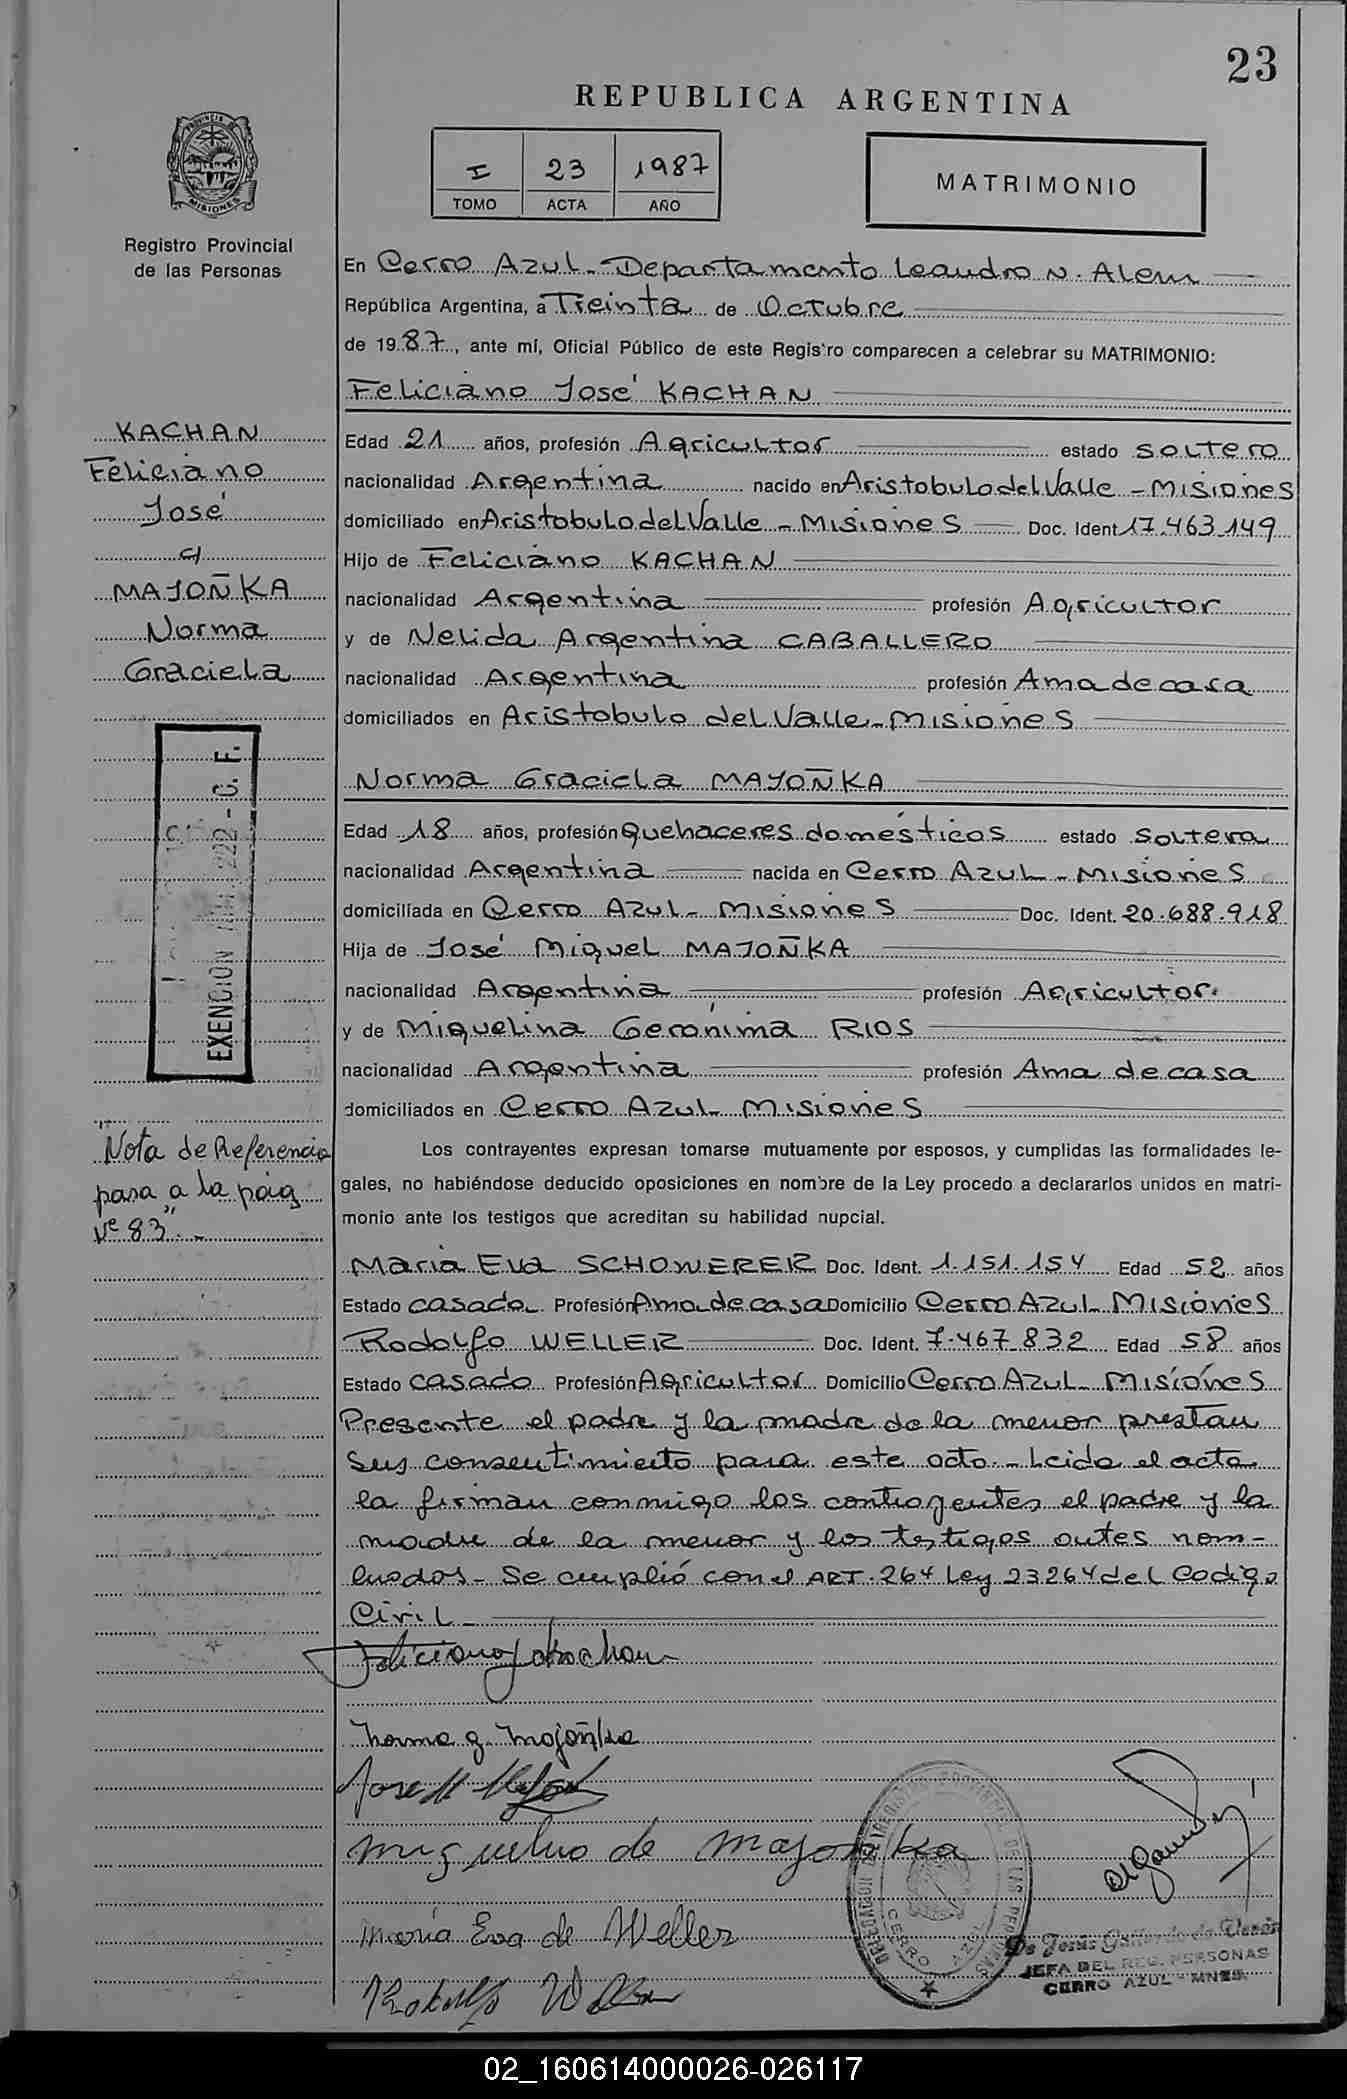 23
REPUBLICA ARGENTINA
I 23 1987
TOMO ACTA AÑO
MATRIMONIO
PROVINCIA DE
MISIONES
Registro Provincial
de las Personas
En Cerro Azul - Departamento Leandro N. Alem
República Argentina, a Treinta de Octubre
de 1987, ante mí, Oficial Público de este Registro comparecen a celebrar su MATRIMONIO:
Feliciano José KACHAN
KACHAN
Feliciano
José
c/
MAJOÑKA
Norma
Graciela
Edad 21 años, profesión Agricultor estado soltero
nacionalidad Argentina nacido en Aristobulo del Valle - Misiones
domiciliado en Aristobulo del Valle - Misiones Doc. Ident. 17.463.149
Hijo de Feliciano KACHAN
nacionalidad Argentina profesión Agricultor
y de Nelida Argentina CABALLERO
nacionalidad Argentina profesión Ama de casa
domiciliados en Aristobulo del Valle - Misiones
Norma Graciela MAJOÑKA
Edad 18 años, profesión quehaceres domésticos estado soltera
nacionalidad Argentina nacida en Cerro Azul - Misiones
domiciliada en Cerro Azul - Misiones Doc. Ident. 20.688.918
Hija de José Miguel MAJOÑKA
nacionalidad Argentina profesión Agricultor
y de Miguelina Gerónima RIOS
nacionalidad Argentina profesión Ama de casa
domiciliados en Cerro Azul - Misiones
EXENCION 222 - C. F.
"Nota de Referencia
pasa a la pág
Nº 83" . -
Los contrayentes expresan tomarse mutuamente por esposos, y cumplidas las formalidades le-
gales, no habiéndose deducido oposiciones en nombre de la Ley procedo a declararlos unidos en matri-
monio ante los testigos que acreditan su habilidad nupcial.
Maria Eva SCHOWERER Doc. Ident. 1.151.154 Edad 52 años
Estado casada Profesión Ama de casa Domicilio Cerro Azul - Misiones
Rodolfo WELLER Doc. Ident. 7.467.832 Edad 58 años
Estado casado Profesión Agricultor Domicilio Cerro Azul - Misiones
Presente el padre y la madre de la menor prestan
sus consentimiento para este acto. - Leida el acta
la firman conmigo los contrayentes el padre y la
madre de la menor y los testigos antes nom-
brados - Se cumplió con el ART. 264 Ley 23264 del Codigo
Civil -
Feliciano J. Kachan
Norma G. Majoñka
Jose M
Miguelina de Majonka
María Eva de Weller
Rodolfo Weller
DELEGACION DEL REGISTRO PROVINCIAL DE LAS PERSONAS
CERRO AZUL
De Jesús Gallardo de
JEFA DEL REG. PERSONAS
CERRO AZUL - MNES.
02_160614000026-026117